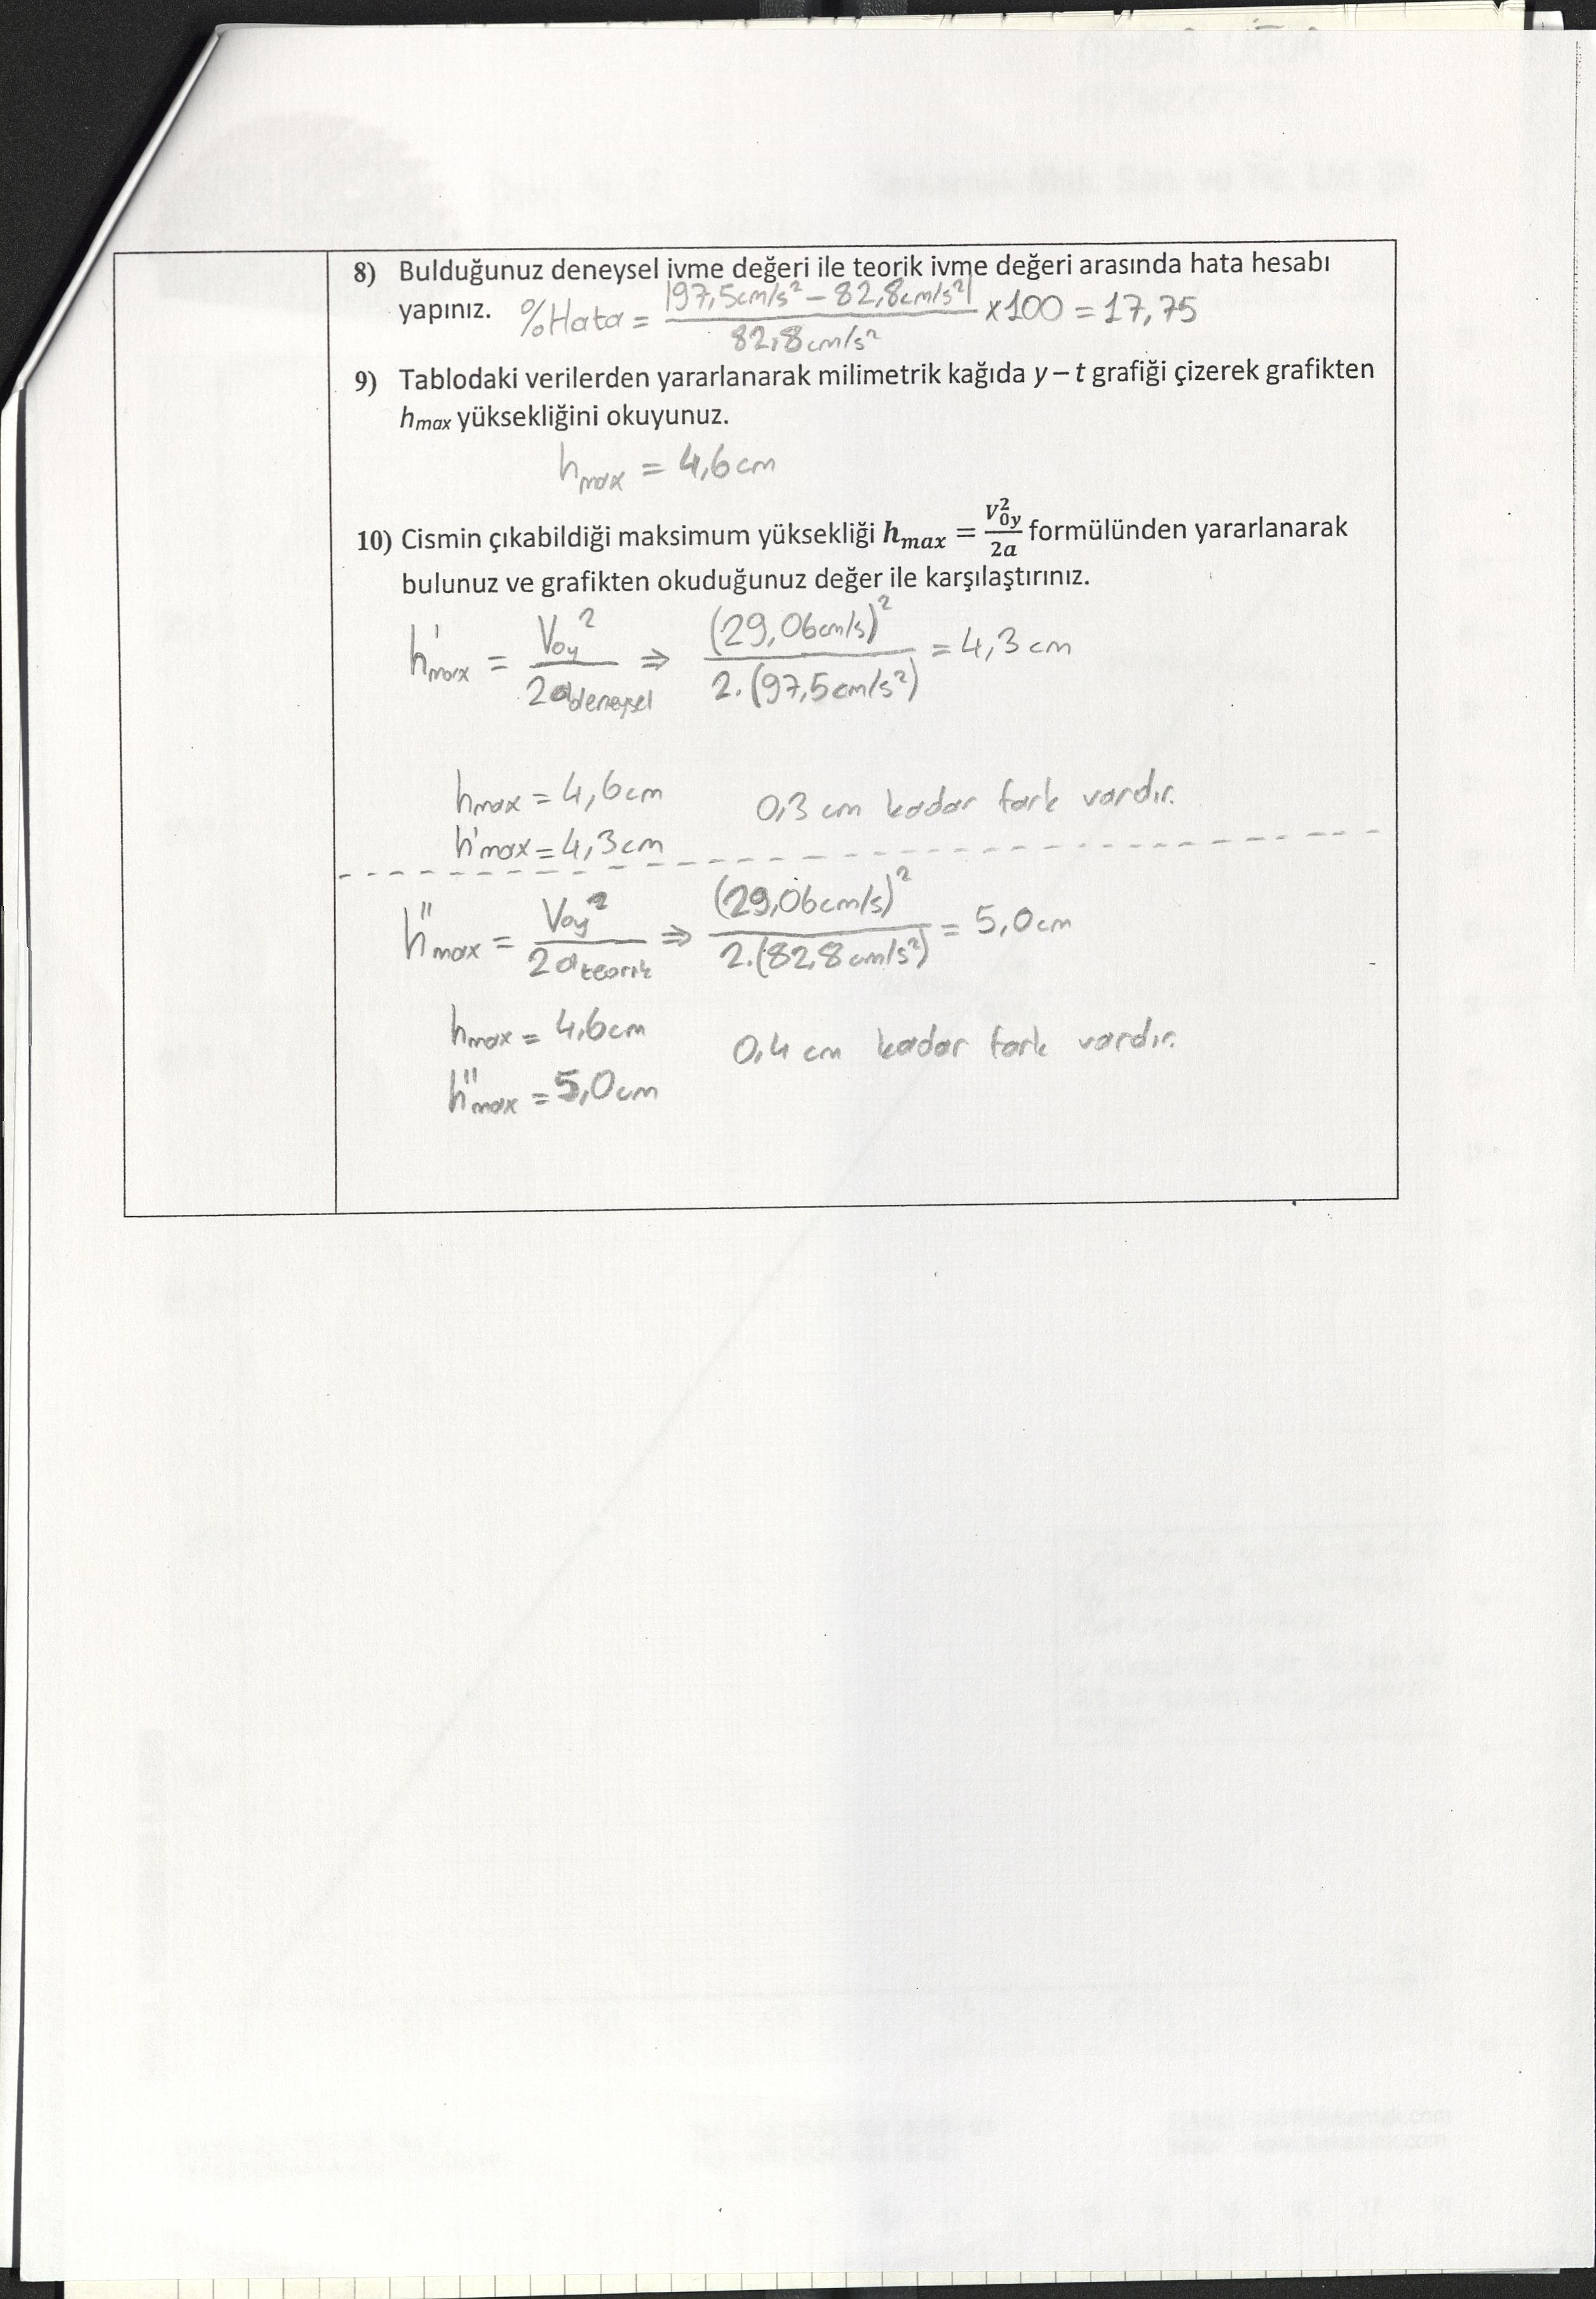 8) Bulduğunuz deneysel ivme değeri ile teorik ivme değeri arasında hata hesabı
yapınız. %Hata = |97,5cm/s² - 82,8cm/s²| / 82,8cm/s² x100 = 17,75
9) Tablodaki verilerden yararlanarak milimetrik kağıda y – t grafiği çizerek grafikten
hmax yüksekliğini okuyunuz.
hmax = 4,6cm
10) Cismin çıkabildiği maksimum yüksekliği hmax = V²0y / 2a formülünden yararlanarak
bulunuz ve grafikten okuduğunuz değer ile karşılaştırınız.
h'max = Voy² / 2adeneysel ⇒ (29,06cm/s)² / 2.(97,5cm/s²) = 4,3 cm
hmax = 4,6cm 0,3 cm kadar fark vardır.
h'max = 4,3cm
h"max = Voy² / 2ateorik ⇒ (29,06cm/s)² / 2.(82,8cm/s²) = 5,0cm
hmax = 4,6cm 0,4 cm kadar fark vardır.
h"max = 5,0cm